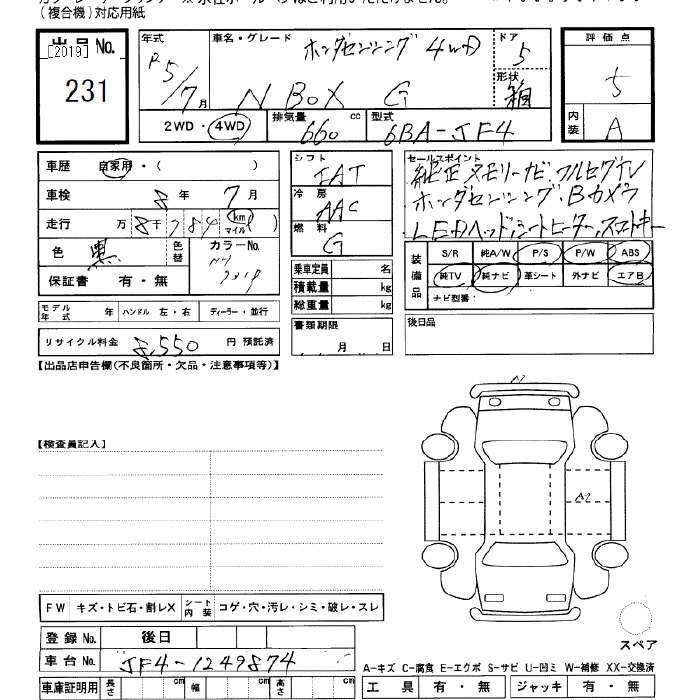 (複合機)対応用紙
出品No. [2019] 231
年式 R5/7月
車名・グレード ホンダセンシング 4WD
N BOX G
ドア 5
形状 箱
評価点 5
内装 A
2WD・4WD 排気量 660 cc 型式 6BA-JF4
車歴 自家用・( )
車検 8年 7月
走行 万 8千784 km マイル ( )
色 黒 色替 カラーNo.
保証書 有・無
モデル年式 年 ハンドル 左・右 ディーラー・並行
リサイクル料金 8,550 円 預託済
シフト IAT
冷房 AAC
燃料 G
乗車定員 名
積載量 kg
総重量 kg
書類期限
月 日
セールスポイント 純正メモリーナビ フルセグTV
ホンダセンシング、Bカメラ
LEDヘッド、シートヒーター、スマートキー
装備品 S/R 純A/W P/S P/W ABS
純TV 純ナビ 革シート 外ナビ エアB
ナビ型番:
後日品
【出品店申告欄(不良箇所・欠品・注意事項等)】
【検査員記入】
A2
FW キズ・トビ石・割レX シート内装 コゲ・穴・汚レ・シミ・破レ・スレ
登録No. 後日
車台No. JF4-1249874
車庫証明用 長さ cm 幅 cm 高さ cm
スペア
A-キズ C-腐食 E-エクボ S-サビ U-凹ミ W-補修 XX-交換済
工具 有・無 ジャッキ 有・無